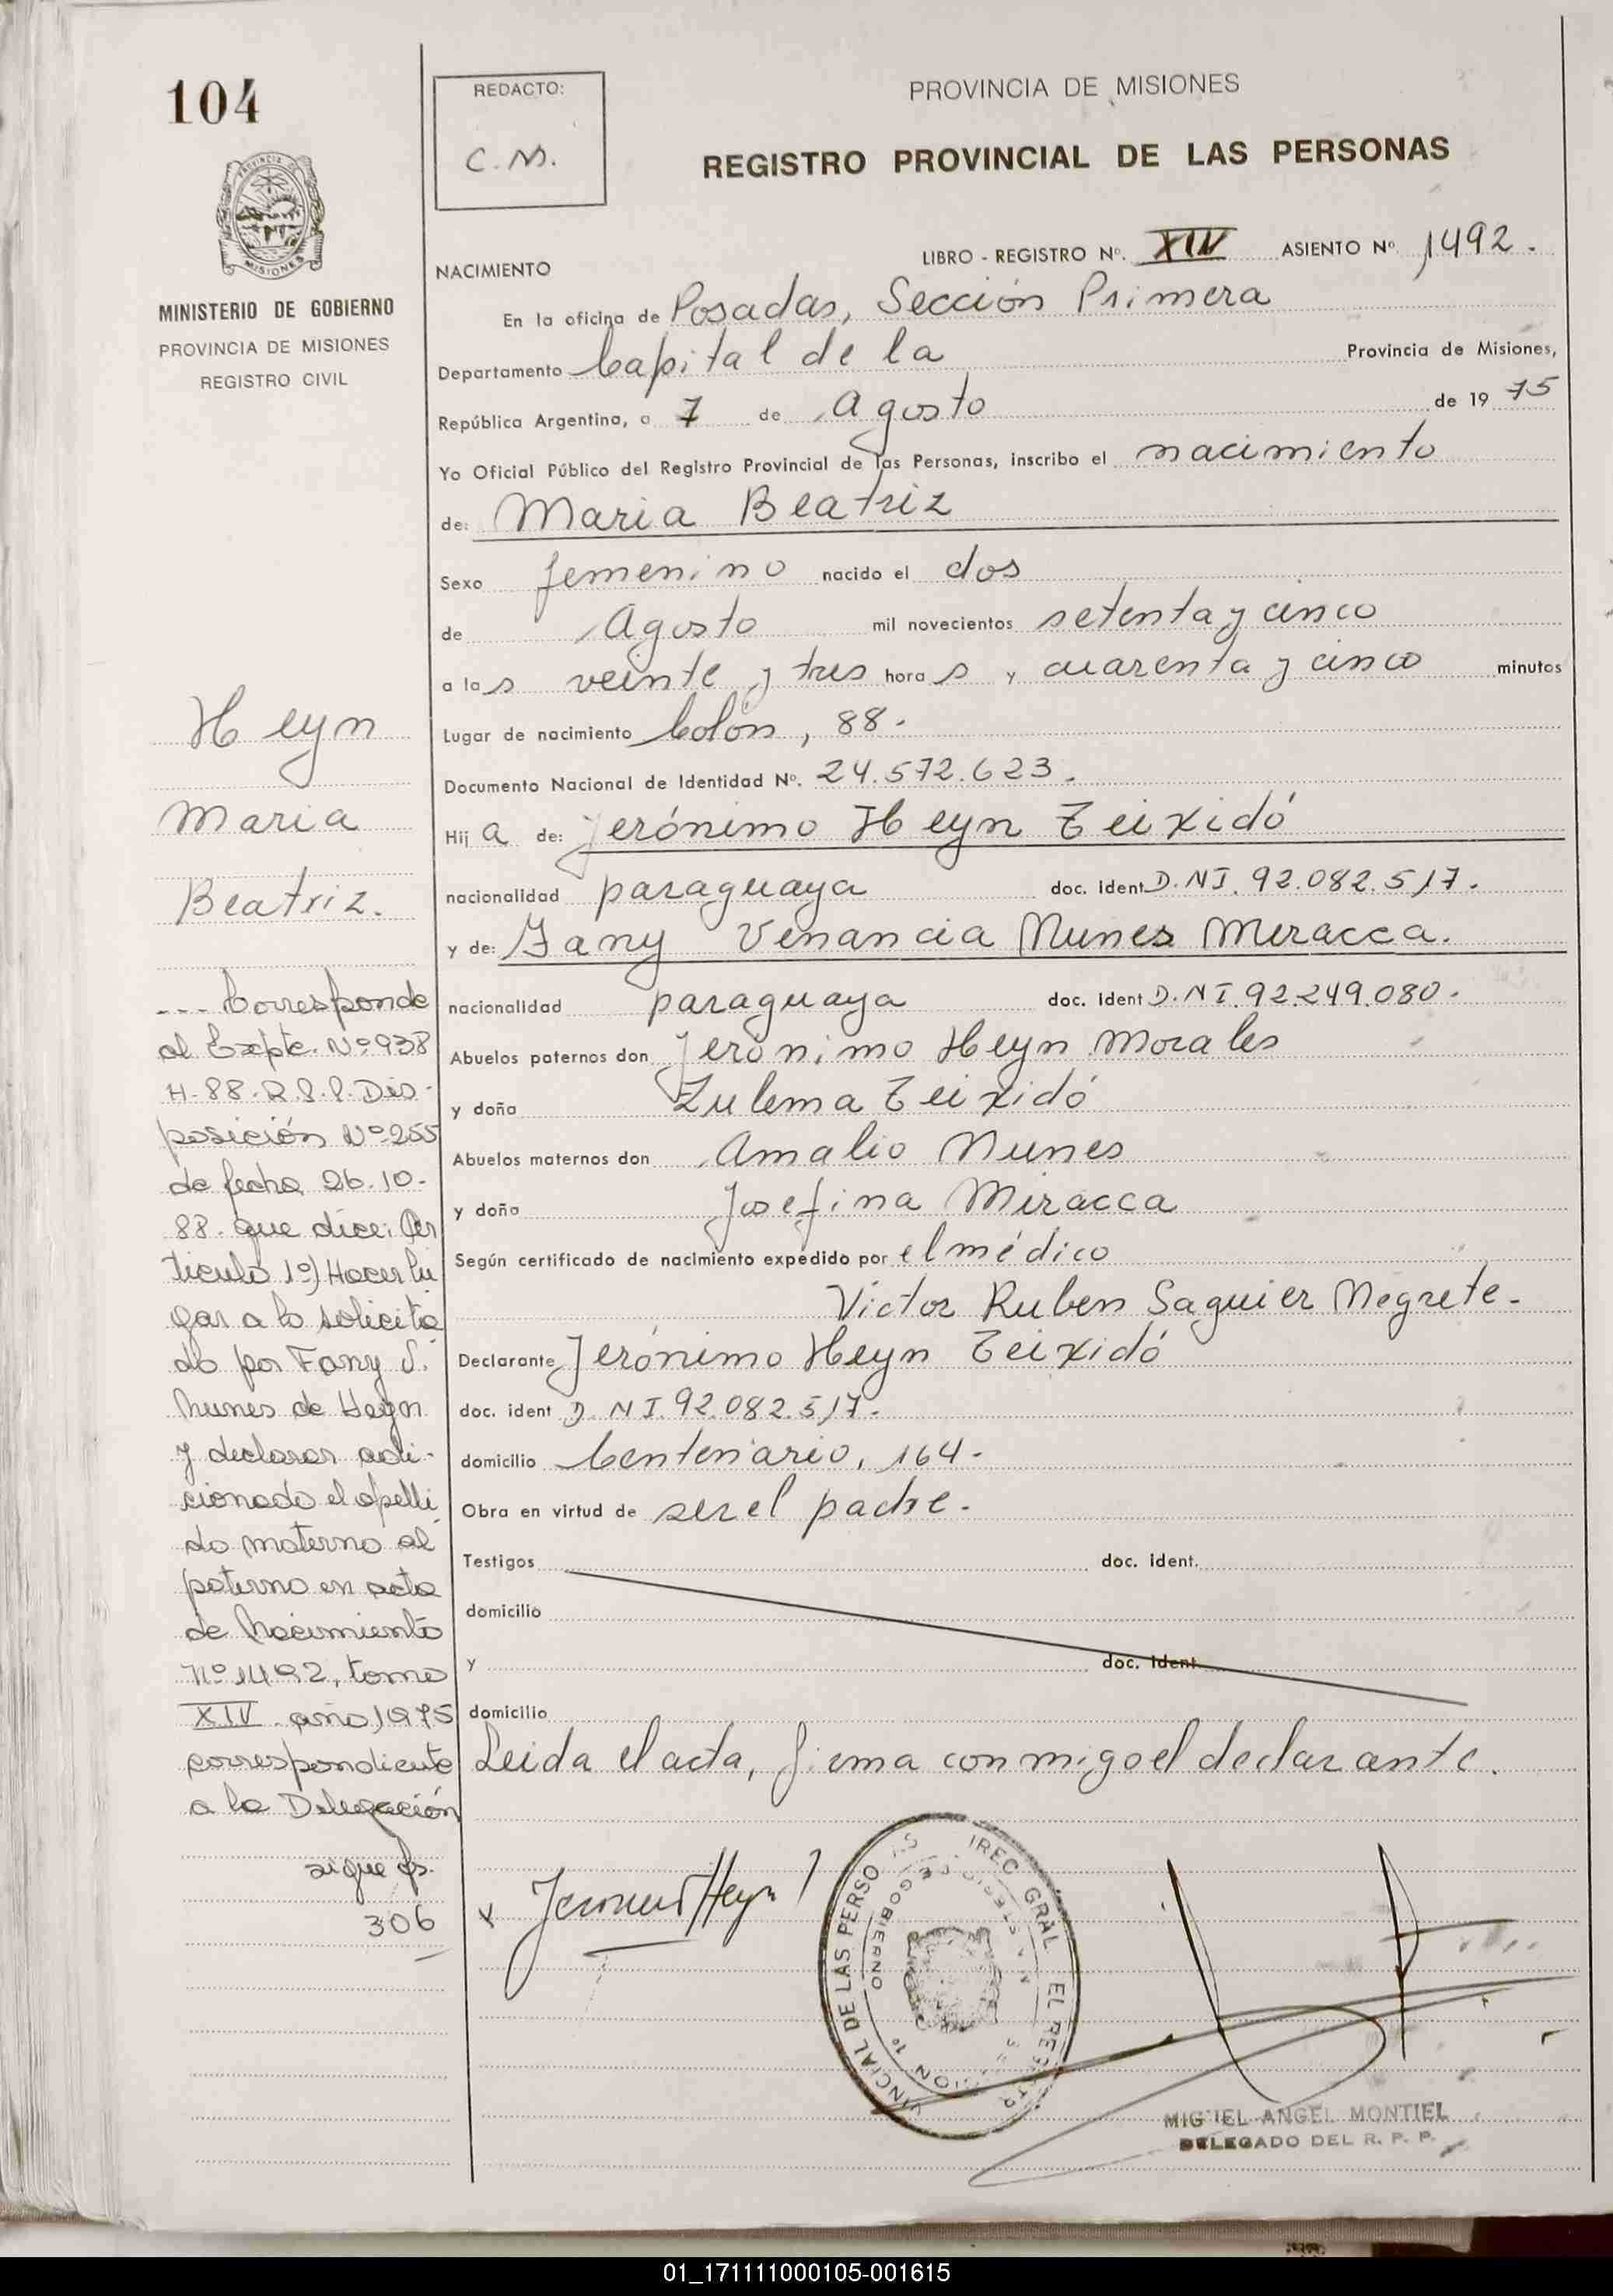 104
MINISTERIO DE GOBIERNO
PROVINCIA DE MISIONES
REGISTRO CIVIL
Heyn
Maria
Beatriz.
--- Corresponde
al Expte. Nº 938
H-88-R.P.P. Dis-
posición Nº 255
de fecha 26.10.
88. que dice: Ar
tículo 1º) Hacer lu
gar a lo solicita
do por Fany V.
Nunes de Heyn
y declarar adi-
cionado el apelli
do materno al
paterno en acta
de Nacimiento
Nº 1492, tomo
XIV año 1975
correspondiente
a la Delegación
sigue fs.
306
REDACTO:
C. M.
PROVINCIA DE MISIONES
REGISTRO PROVINCIAL DE LAS PERSONAS
LIBRO - REGISTRO Nº. XIV ASIENTO Nº. 1492.
NACIMIENTO
En la oficina de Posadas, Sección Primera
Departamento Capital de la Provincia de Misiones,
República Argentina, a 7 de Agosto de 19 75
Yo Oficial Público del Registro Provincial de las Personas, inscribo el nacimiento
de: Maria Beatriz
Sexo femenino nacido el dos
de Agosto mil novecientos setenta y cinco
a las veinte y tres horas y cuarenta y cinco minutos
Lugar de nacimiento Colón, 88.
Documento Nacional de Identidad Nº. 24.572.623.
Hija de: Jerónimo Heyn Teixidó
nacionalidad paraguaya doc. ident D.NI. 92.082.517.
y de: Fany Venancia Nunes Miracca.
nacionalidad paraguaya doc. ident D.NI. 92.249.080.
Abuelos paternos don Jerónimo Heyn Morales
y doña Zulema Teixidó
Abuelos maternos don Amalio Nunes
y doña Josefina Miracca
Según certificado de nacimiento expedido por el médico
Victor Ruben Saguier Negrete.
Declarante Jerónimo Heyn Teixidó
doc. ident D.NI. 92.082.517.
domicilio Centenario, 164.
Obra en virtud de ser el padre.
Testigos doc. ident.
domicilio
y doc. ident.
domicilio
Leida el acta, firma conmigo el declarante.
MIGUEL ANGEL MONTIEL
DELEGADO DEL R. P. P.
01_171111000105-001615